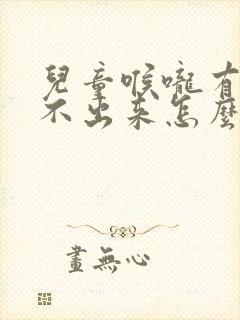 兒童喉嚨有
不出来怎麼
畫無心